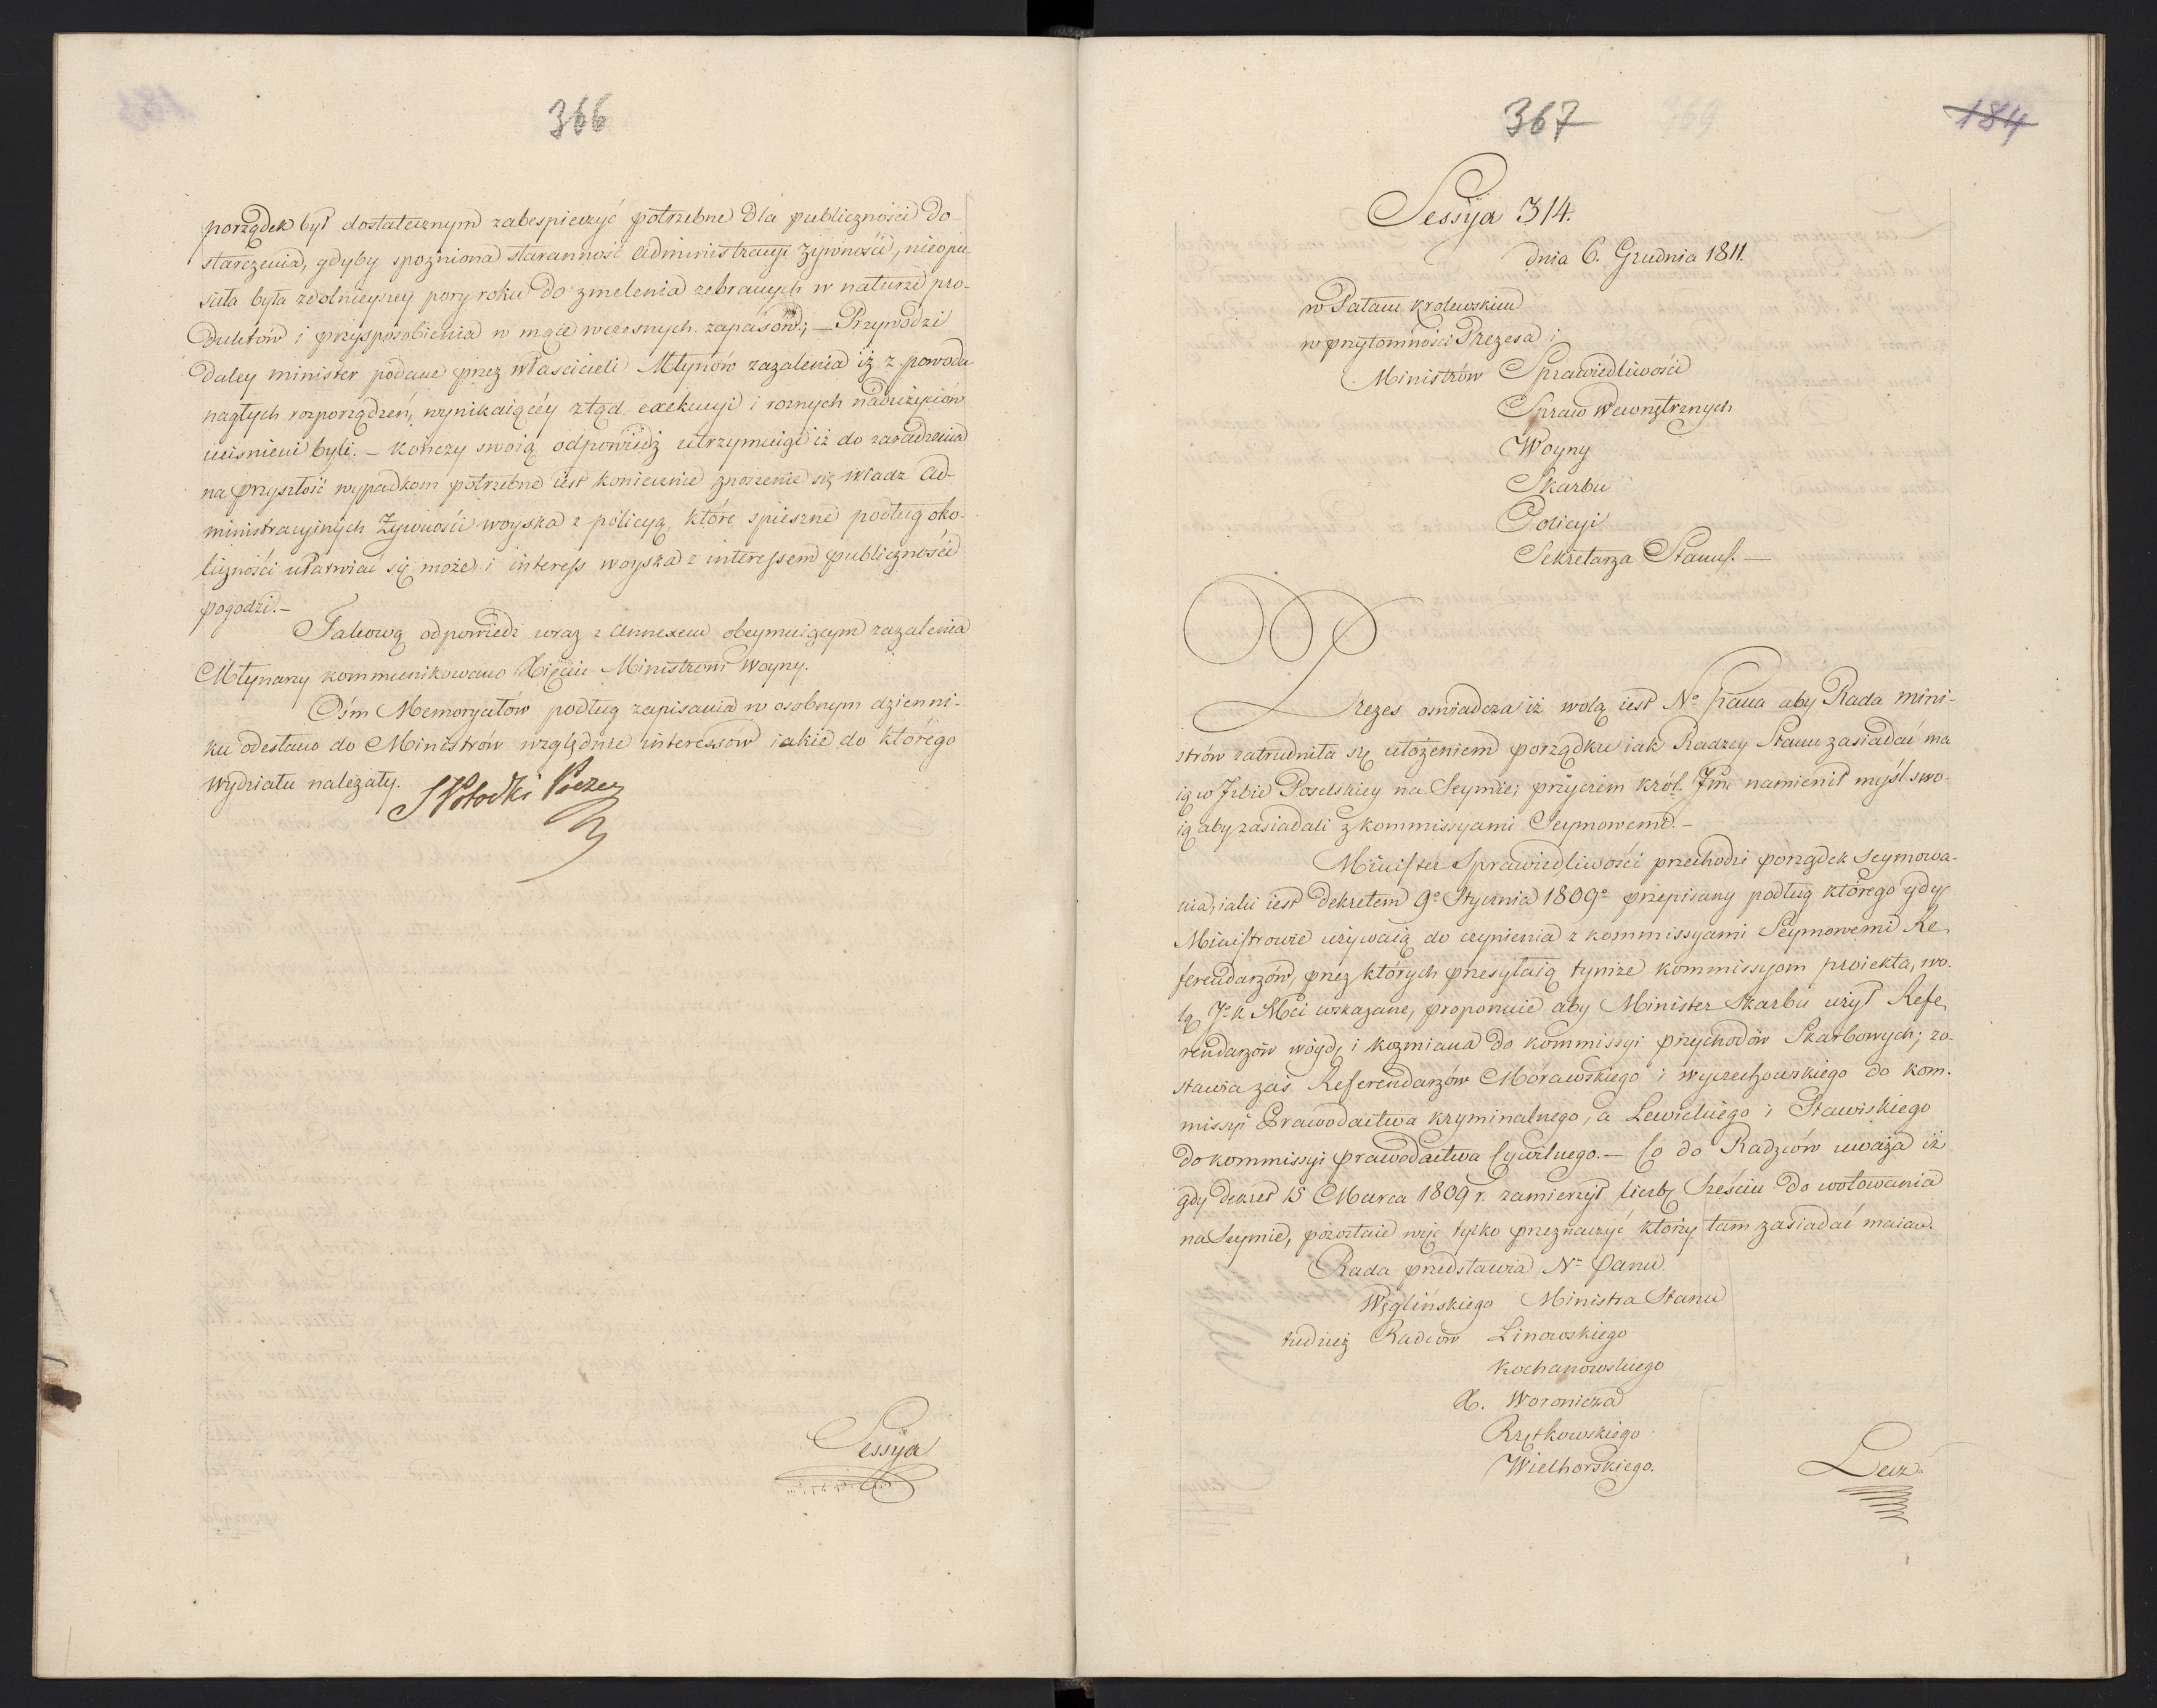 366
porządek był dostatecznym zabespieczyć potrzebne dla publiczności do-
starczenia, gdyby spozniona staranność administracyi żywności, nieopu-
siła była zdolnieyszey pory roku do zmelenia zebranych w naturze pro-
duktów i przysposobienia w mące wczesnych zapasów; — Przywodzi
daley minister podane przez właścicieli Młynów zażalenia iż z powodu
nagłych rozporządzeń, wynikaiącéy ztąd exekucyi i roznych nadużyciów
uciśnieni byli. — kończy swoią odpowiedz utrzymuiąc iż do zaradzenia
na przyszłość wypadkom potrzebne iest koniecznie znoszenie się władz ad-
ministracyinych Żywności woyska z policyą, które spiesznie podług oko-
liczności ułatwiać się może i interess woyska z interessem publiczności
pogodzi. —
Takową odpowiedź wraz z annexem obeymuiącym zażalenia
Młynarzy kommunikowano Xięciu Ministrowi Woyny.
Ośm Memoryałów podług zapisania w osobnym dzienni-
ku odesłano do Ministrów względnie interessów iakie do którego
wydziału należały. S Potocki Prezes
Sessÿa
367
184
Sessÿa 314.
dnia 6. Grudnia 1811.
w Pałacu Krolewskim
w przytomności Prezesa i
Ministrów Sprawiedliwości
Spraw Wewnętrznych
Woyny
Skarbu
Policyi
Sekretarza Stanu. —
Prezes oświadcza iż wolą iest No Pana aby Rada mini-
strów zatrudniła się ułożeniem porządku iak Radzcy Stanu zasiadać ma
ią w Izbie Poselskiey na Seymie; przyczém Król. Jmć namienił myśl swo-
ią aby zasiadali z kommissyami Seymowemi. —
Minister Sprawiedliwości przechodzi porządek seymowa-
nia, iaki iest Dekretem 9o Stycznia 1809o przepisany podług którego gdy
Ministrowie używaią do czynienia z kommissyami Seymowemi Re
ferendarzów, przez których przesyłaią tymże kommissyom proiekta, wo-
lą Jo K Mci wskazane, proponuie aby Minister Skarbu użył Refe
rendarzów Woydę i Kozmiana do kommissyi przychodów Skarbowych; zo-
stawia zaś Referendarzów Morawskiego i Wyczechowskiego do kom-
missyi Prawodactwa kryminalnego, a Lewickiego i Stawiskiego
do kommissyi prawodactwa Cywilnego. — Co do Radzców uważa iż
gdy dekret 15 Marca 1809 r. zamierzył liczbę Sześciu do wotowania
na Seymie, pozostaie więc tylko przeznaczyć którzy tam zasiadać maią.
Rada przedstawia No Panu
Węglińskiego Ministra Stanu
tudzież Radców Linowskiego
Kochanowskiego
X. Woronicza
Rzętkowskiego
Wielhorskiego.
Lecz